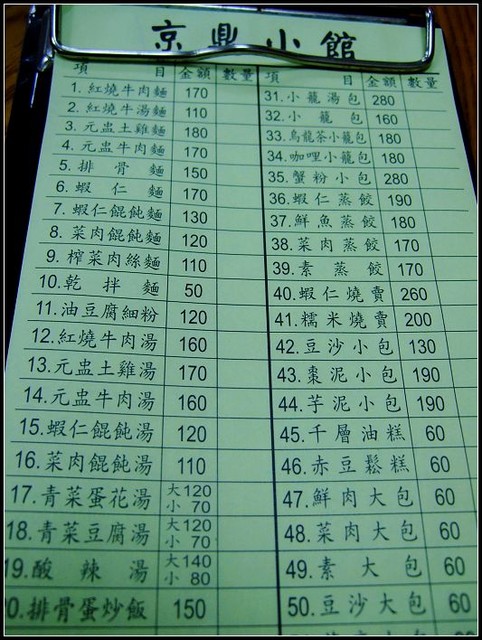 京鼎小館
項 目 金額 數量
1. 紅燒牛肉麵 170
2. 紅燒牛湯麵 110
3. 元盅土雞麵 180
4. 元盅牛肉麵 170
5. 排骨麵 150
6. 蝦仁麵 170
7. 蝦仁餛飩麵 130
8. 菜肉餛飩麵 120
9. 榨菜肉絲麵 110
10. 乾拌麵 50
11. 油豆腐細粉 120
12. 紅燒牛肉湯 160
13. 元盅土雞湯 170
14. 元盅牛肉湯 160
15. 蝦仁餛飩湯 120
16. 菜肉餛飩湯 110
17. 青菜蛋花湯 大120 小70
18. 青菜豆腐湯 大120 小70
19. 酸辣湯 大140 小80
20. 排骨蛋炒飯 150
項 目 金額 數量
31. 小籠湯包 280
32. 小籠包 160
33. 烏龍茶小籠包 180
34. 咖哩小籠包 180
35. 蟹粉小包 280
36. 蝦仁蒸餃 190
37. 鮮魚蒸餃 180
38. 菜肉蒸餃 170
39. 素蒸餃 170
40. 蝦仁燒賣 260
41. 糯米燒賣 200
42. 豆沙小包 130
43. 棗泥小包 190
44. 芋泥小包 190
45. 千層油糕 60
46. 赤豆鬆糕 60
47. 鮮肉大包 60
48. 菜肉大包 60
49. 素大包 60
50. 豆沙大包 60